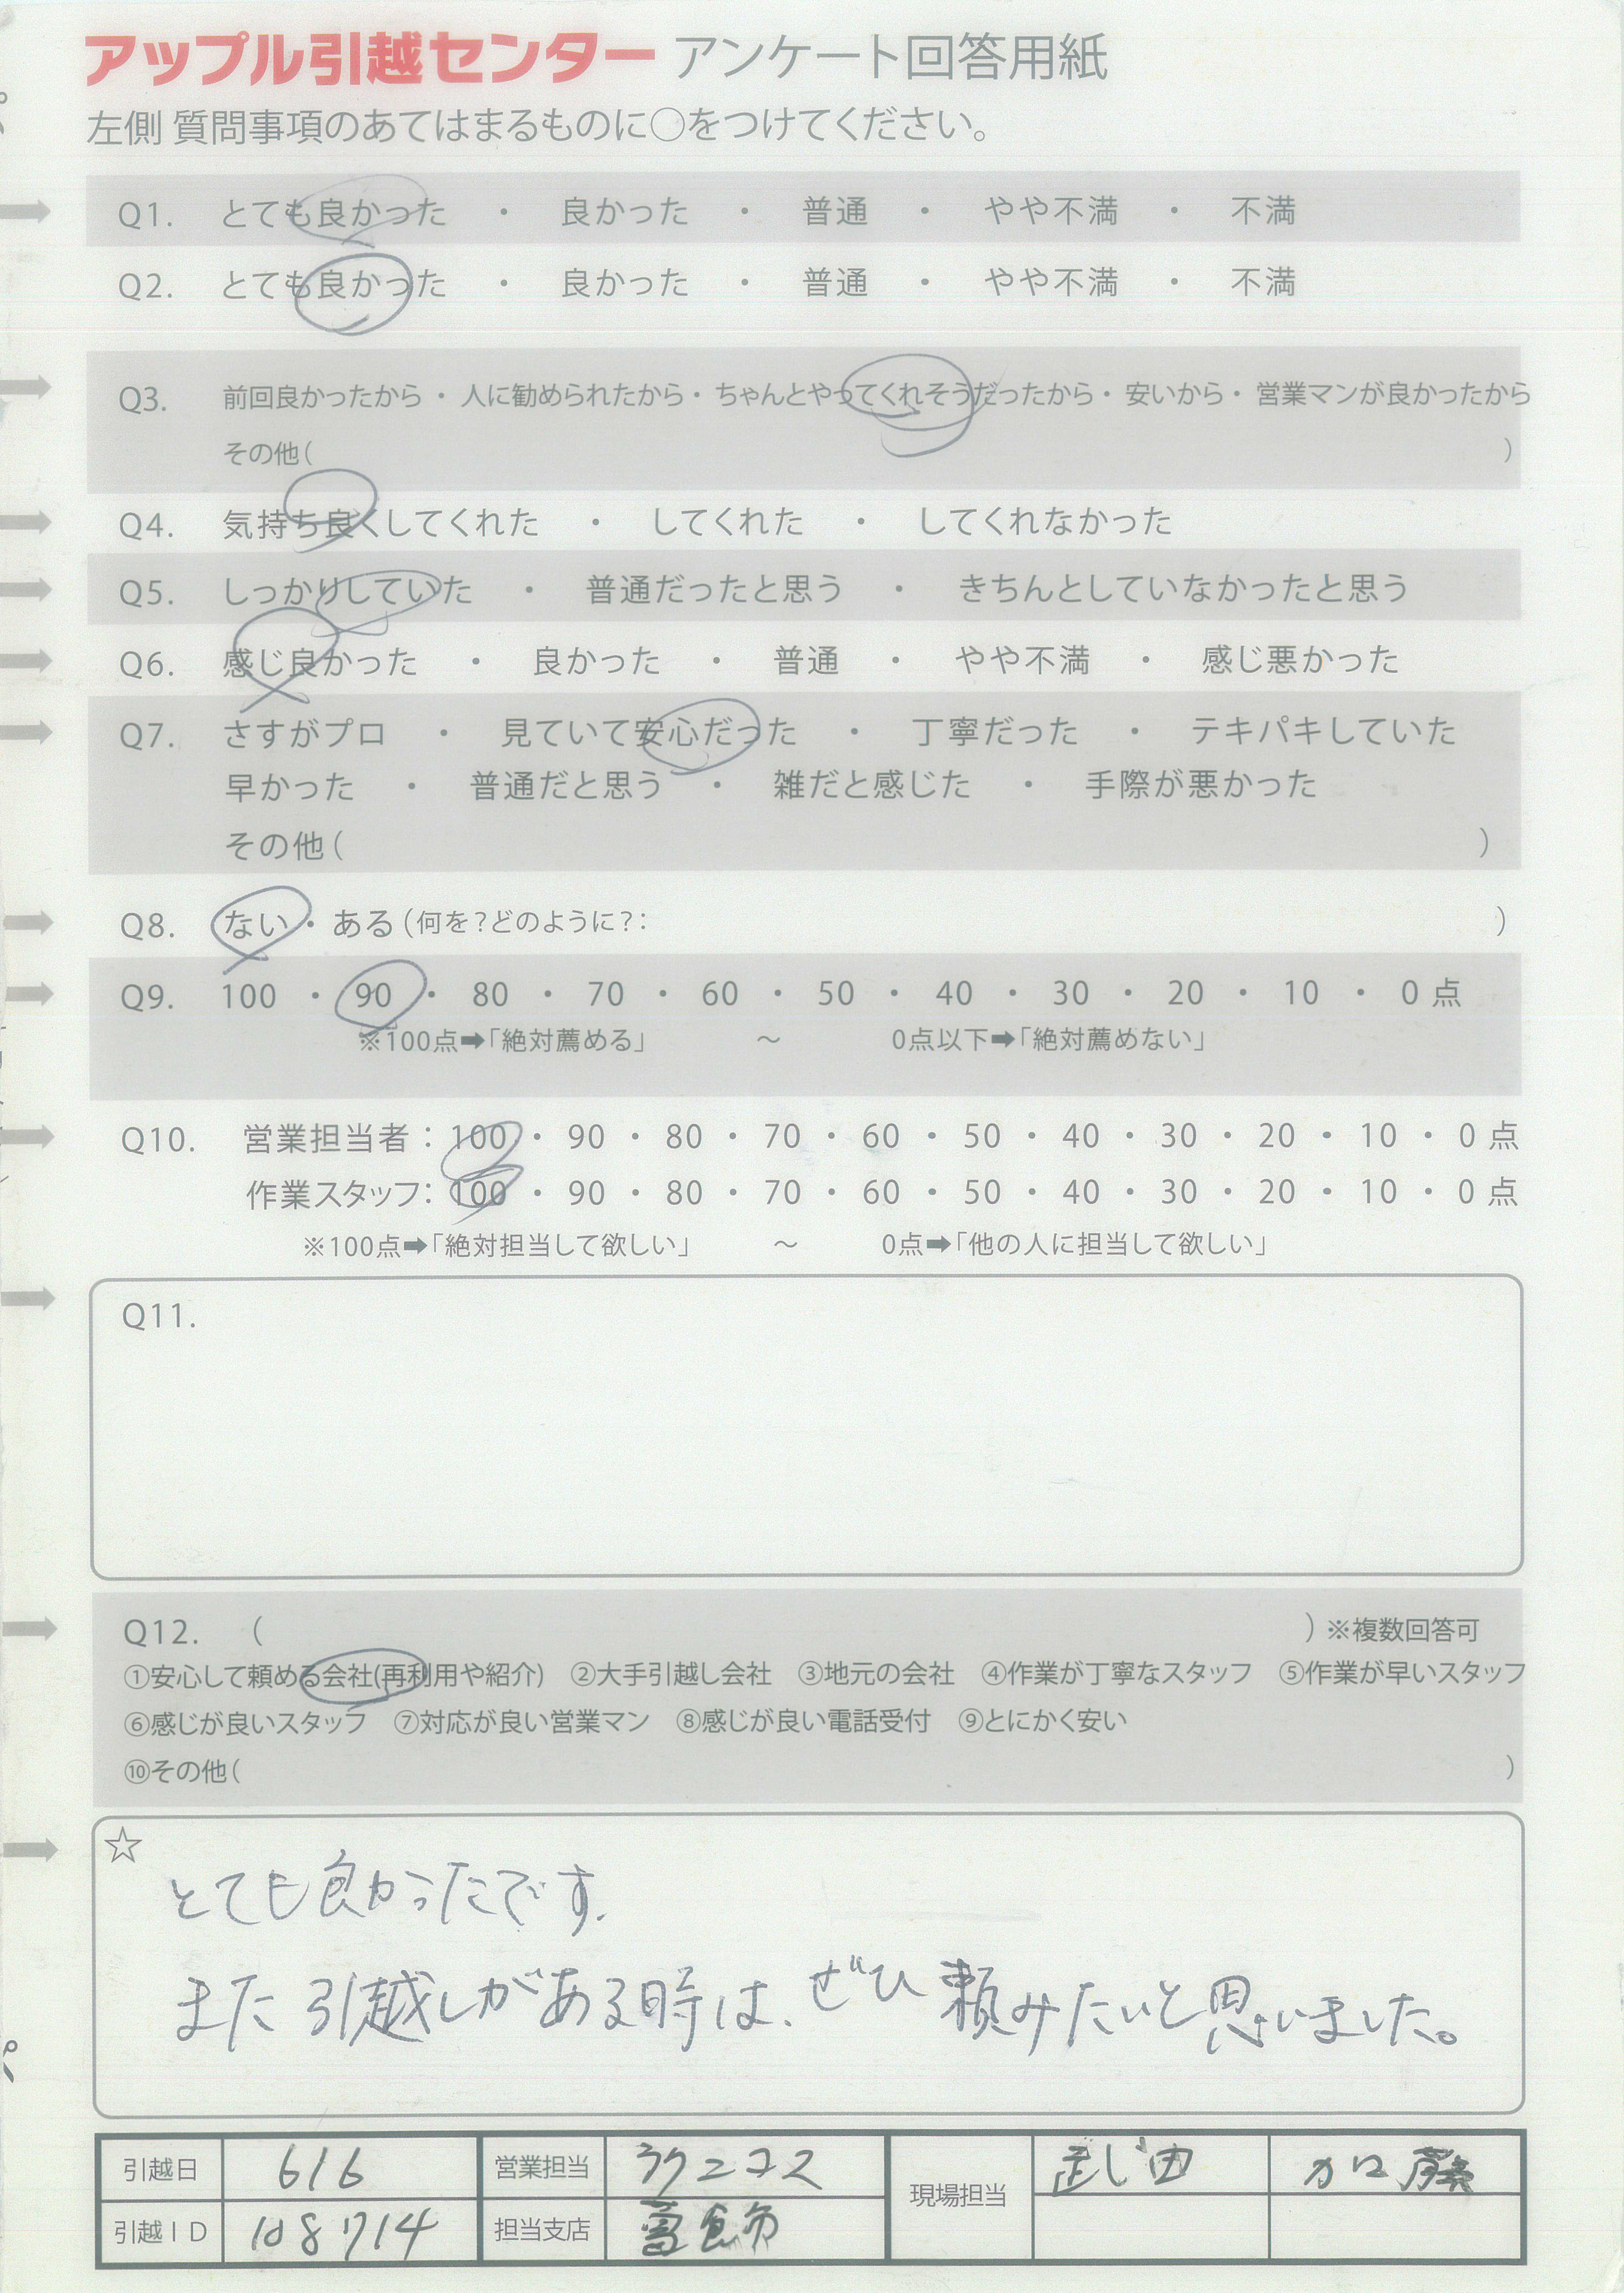 アップル引越センター アンケート回答用紙
左側 質問事項のあてはまるものに○をつけてください。
Q1. とても良かった ・ 良かった ・ 普通 ・ やや不満 ・ 不満
Q2. とても良かった ・ 良かった ・ 普通 ・ やや不満 ・ 不満
Q3. 前回良かったから ・ 人に勧められたから ・ ちゃんとやってくれそうだったから ・ 安いから ・ 営業マンが良かったから
その他( )
Q4. 気持ち良くしてくれた ・ してくれた ・ してくれなかった
Q5. しっかりしていた ・ 普通だったと思う ・ きちんとしていなかったと思う
Q6. 感じ良かった ・ 良かった ・ 普通 ・ やや不満 ・ 感じ悪かった
Q7. さすがプロ ・ 見ていて安心だった ・ 丁寧だった ・ テキパキしていた
早かった ・ 普通だと思う ・ 雑だと感じた ・ 手際が悪かった
その他( )
Q8. ない ・ ある (何を?どのように?: )
Q9. 100 ・ 90 ・ 80 ・ 70 ・ 60 ・ 50 ・ 40 ・ 30 ・ 20 ・ 10 ・ 0 点
※100点➡「絶対薦める」 ～ 0点以下➡「絶対薦めない」
Q10. 営業担当者: 100 ・ 90 ・ 80 ・ 70 ・ 60 ・ 50 ・ 40 ・ 30 ・ 20 ・ 10 ・ 0 点
作業スタッフ: 100 ・ 90 ・ 80 ・ 70 ・ 60 ・ 50 ・ 40 ・ 30 ・ 20 ・ 10 ・ 0 点
※100点➡「絶対担当して欲しい」 ～ 0点➡「他の人に担当して欲しい」
Q11.
Q12. ( ) ※複数回答可
①安心して頼める会社(再利用や紹介) ②大手引越し会社 ③地元の会社 ④作業が丁寧なスタッフ ⑤作業が早いスタッフ
⑥感じが良いスタッフ ⑦対応が良い営業マン ⑧感じが良い電話受付 ⑨とにかく安い
⑩その他( )
☆
とても良かったです.
また引越しがある時は、ぜひ頼みたいと思いました。
引越日 616 営業担当 現場担当
引越ID 108714 担当支店